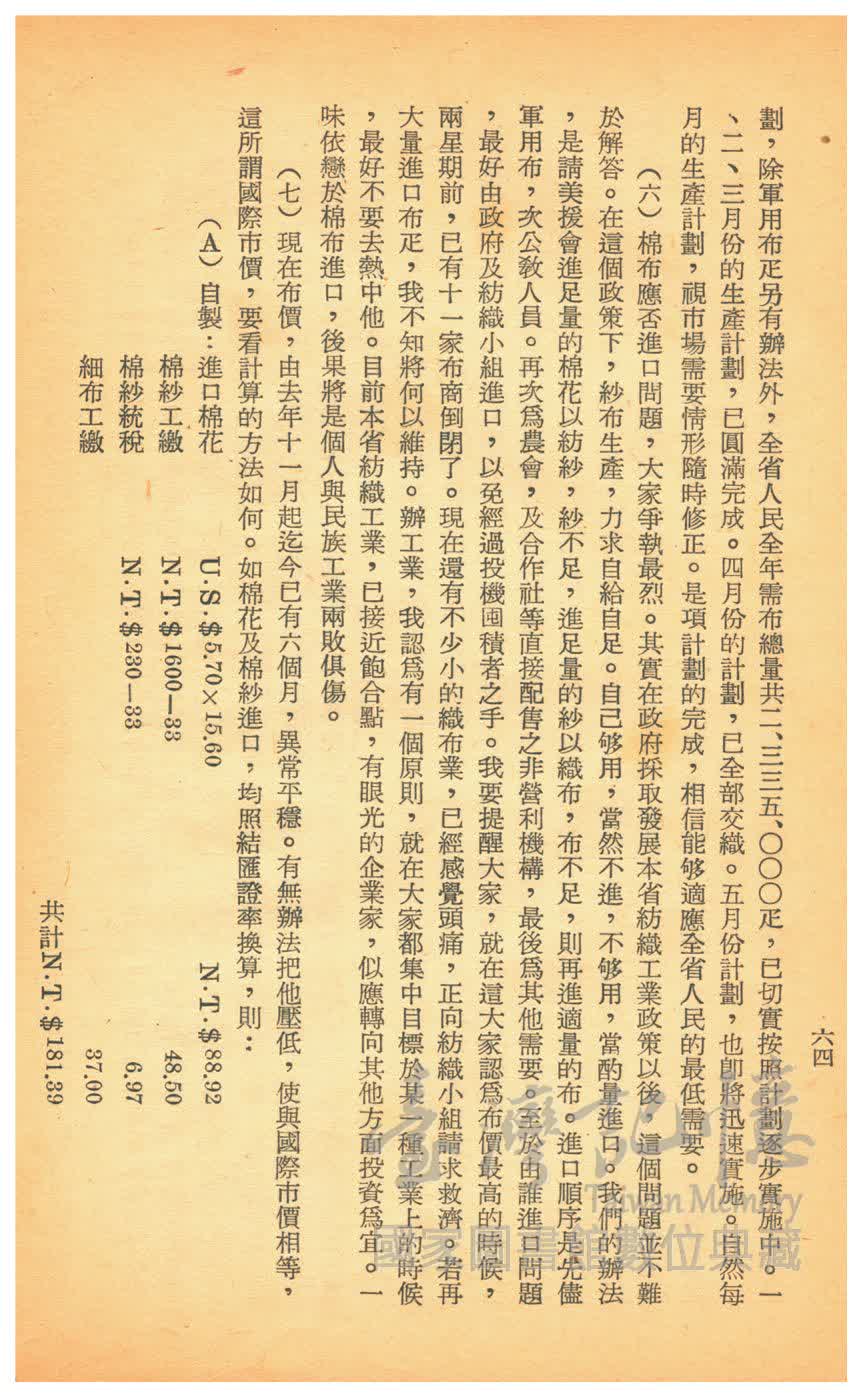 六四
劃，除軍用布疋另有辦法外，全省人民全年需布總量共二、三三五、〇〇〇疋，已切實按照計劃逐步實施中。一
、二、三月份的生產計劃，已圓滿完成。四月份的計劃，已全部交織。五月份計劃，也卽將迅速實施。自然每
月的生產計劃，視市場需要情形隨時修正。是項計劃的完成，相信能够適應全省人民的最低需要。
（六）棉布應否進口問題，大家爭執最烈。其實在政府採取發展本省紡織工業政策以後，這個問題並不難
於解答。在這個政策下，紗布生產，力求自給自足。自己够用，當然不進，不够用，當酌量進口。我們的辦法
，是請美援會進足量的棉花以紡紗，紗不足，進足量的紗以織布，布不足，則再進適量的布。進口順序是先儘
軍用布，次公敎人員。再次爲農會，及合作社等直接配售之非營利機構，最後爲其他需要。至於由誰進口問題
，最好由政府及紡織小組進口，以免經過投機囤積者之手。我要提醒大家，就在這大家認爲布價最高的時候，
兩星期前，已有十一家布商倒閉了。現在還有不少小的織布業，已經感覺頭痛，正向紡織小組請求救濟。若再
大量進口布疋，我不知將何以維持。辦工業，我認爲有一個原則，就在大家都集中目標於某一種工業上的時候
，最好不要去熱中他。目前本省紡織工業，已接近飽合點，有眼光的企業家，似應轉向其他方面投資爲宜。一
味依戀於棉布進口，後果將是個人與民族工業兩敗俱傷。
（七）現在布價，由去年十一月起迄今已有六個月，異常平穩。有無辦法把他壓低，使與國際市價相等，
這所謂國際市價，要看計算的方法如何。如棉花及棉紗進口，均照結匯證率換算，則：
（A）自製：進口棉花 U.S.$5.70×15.60 N.T.$88.92
棉紗工繳 N.T.$1600—33 48.50
棉紗統稅 N.T.$230—33 6.97
細布工繳 37.00
共計N.T.$181.39
臺灣記憶
Taiwan Memory
國家圖書館數位典藏